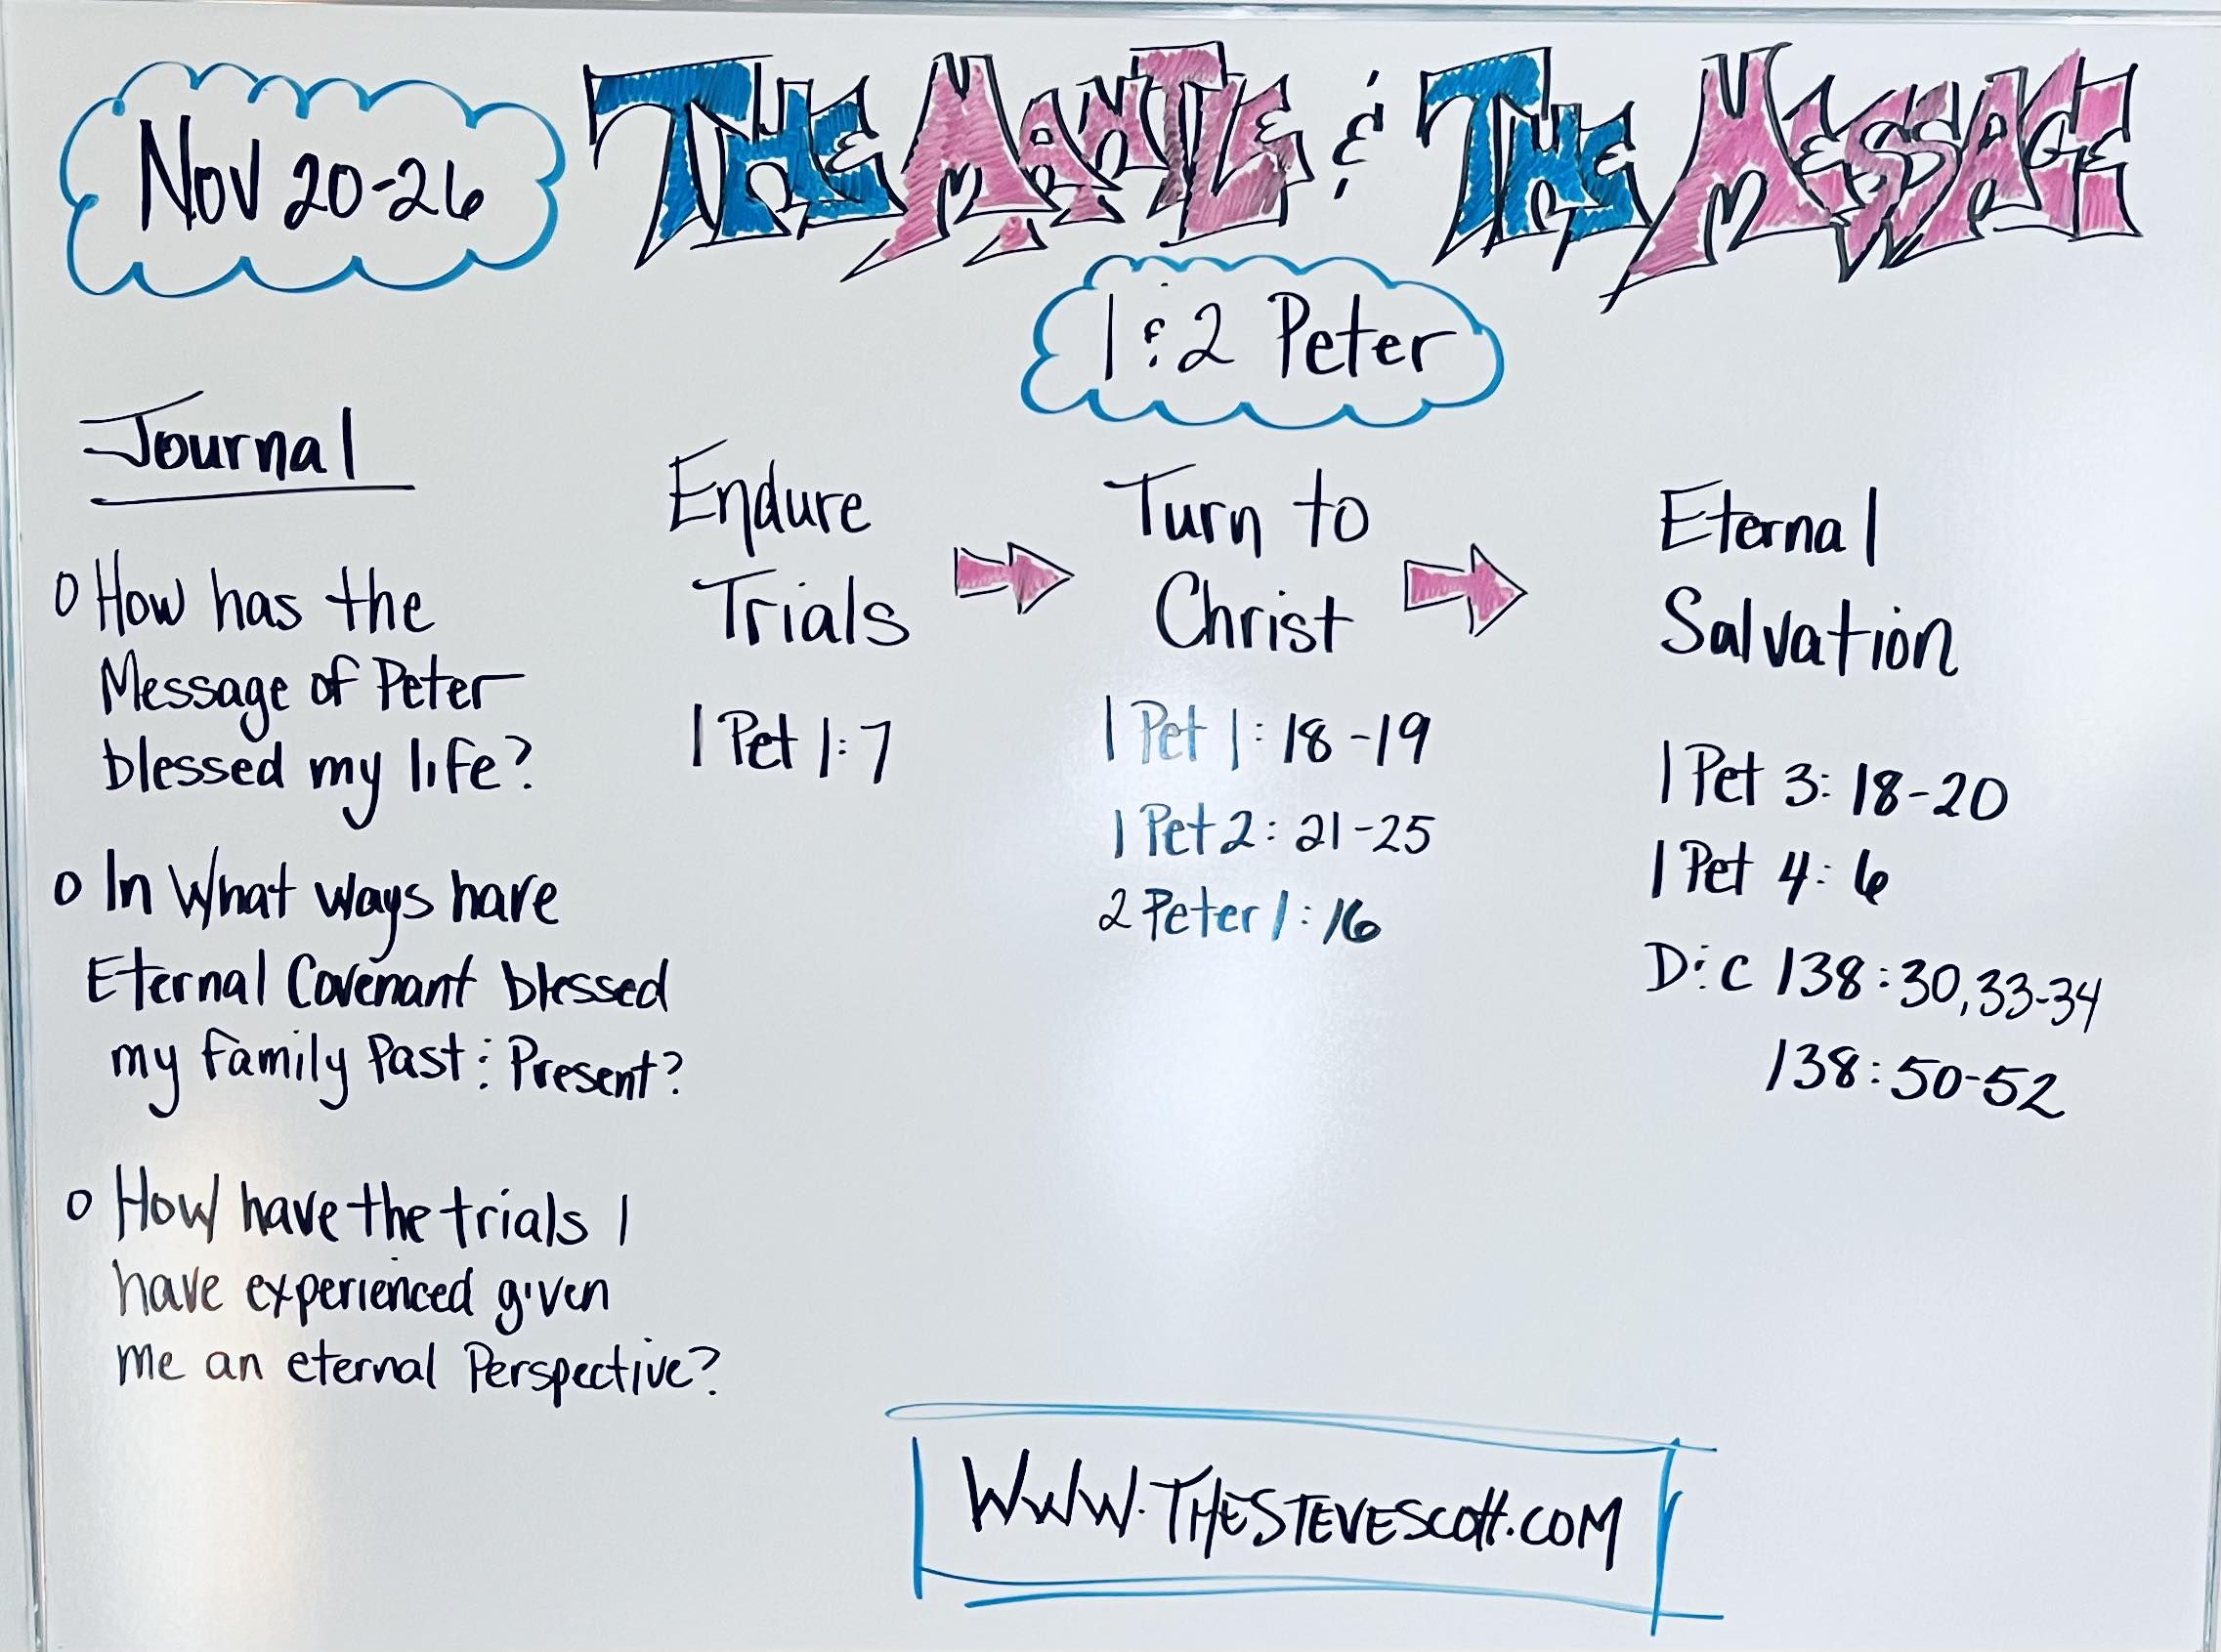 Nov 20-26
THE MANTLE & THE MESSAGE
1 & 2 Peter
Journal
o How has the
Message of Peter
blessed my life?
o In What ways have
Eternal Covenant blessed
my family Past & Present?
o How have the trials I
have experienced given
me an eternal Perspective?
Endure
Trials
1 Pet 1:7
Turn to
Christ
1 Pet 1: 18-19
1 Pet 2: 21-25
2 Peter 1: 16
Eternal
Salvation
1 Pet 3: 18-20
1 Pet 4: 6
D&C 138: 30, 33-34
138: 50-52
WWW.THESTEVESCOTT.COM